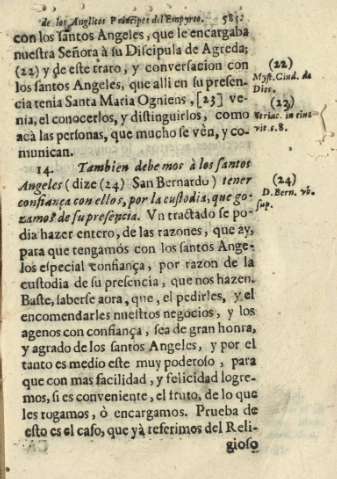 de los Angeli­cos Principes del Empyreo. 585
con los santos Angeles, que le encargaba
nuestra Señora à su Discipula de Agreda;
(22) y de este trato, y conversacion con
los santos Angeles, que alli en su presen-
cia tenia Santa Maria Ogniens, [23] ve-
nia, el conocerlos, y distinguirlos, como
acà las personas, que mucho se vèn, y co-
munican.
14. Tambien debemos à los santos
Angeles (dize (24) San Bernardo) tener
confiança con ellos, por la custodia, que go-
zamos de su presencia. Vn tractado se po-
dia hazer entero, de las razones, que ay,
para que tengamòs con los santos Ange-
los especial confiança, por razon de la
custodia de su presencia, que nos hazen.
Baste, saberse aora, que, el pedirles, y el
encomendarles nuestros negocios, y los
agenos con confiança, sea de gran honra,
y agrado de los santos Angeles, y por el
tanto es medio este muy poderoso, para
que con mas facilidad, y felicidad logre-
mos, si es conveniente, el fruto, de lo que
les rogamos, ò encargamos. Prueba de
esto es el caso, que yà referimos del Reli-
gioso
(22)
Myst. Ciud. de
Dios.
(23)
in eius
vit. c. 8.
(24)
D. Bern. vb.
sup.